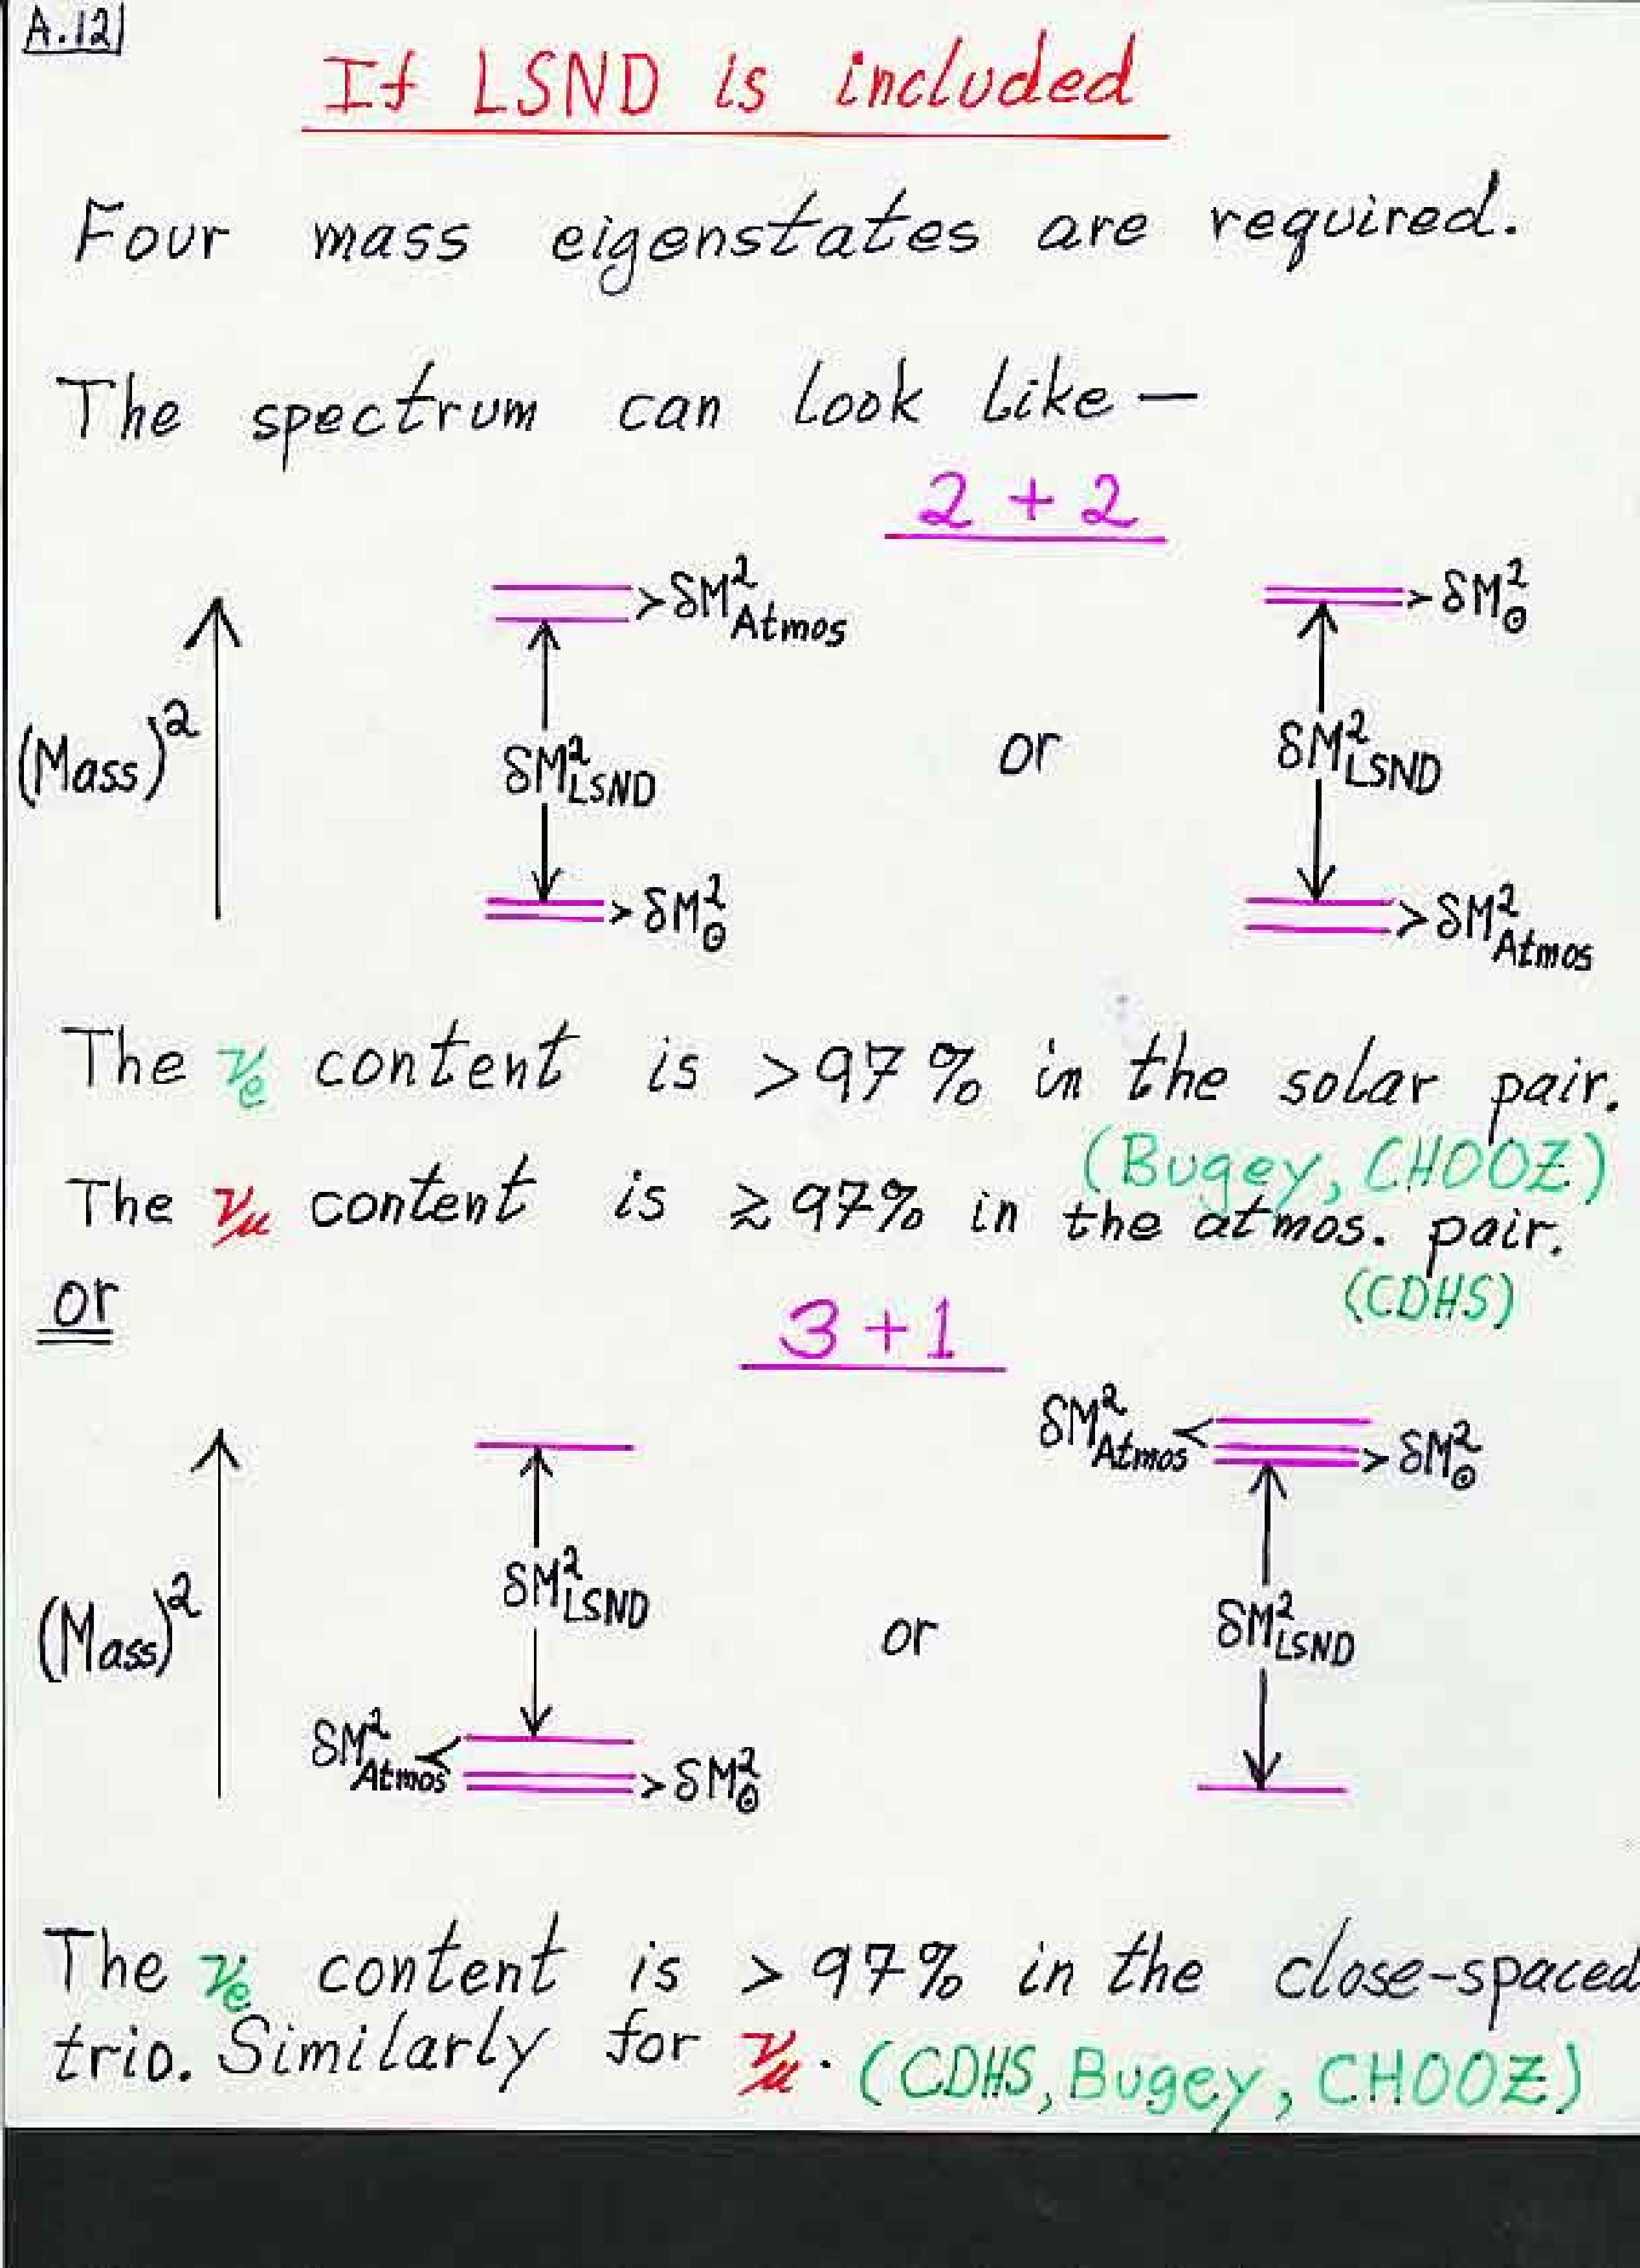 A.12
If LSND is included
Four mass eigenstates are required.
The spectrum can look like —
2 + 2
> δM²Atmos
> δM²⊙
(Mass)²
δM²LSND
or
δM²LSND
> δM²⊙
> δM²Atmos
The νe content is >97% in the solar pair.
(Bugey, CHOOZ)
The νμ content is ≳97% in the atmos. pair.
(CDHS)
or
3 + 1
δM²Atmos <
> δM²⊙
(Mass)²
δM²LSND
or
δM²LSND
δM²Atmos <
> δM²⊙
The νe content is > 97% in the close-spaced
trio. Similarly for νμ. (CDHS, Bugey, CHOOZ)